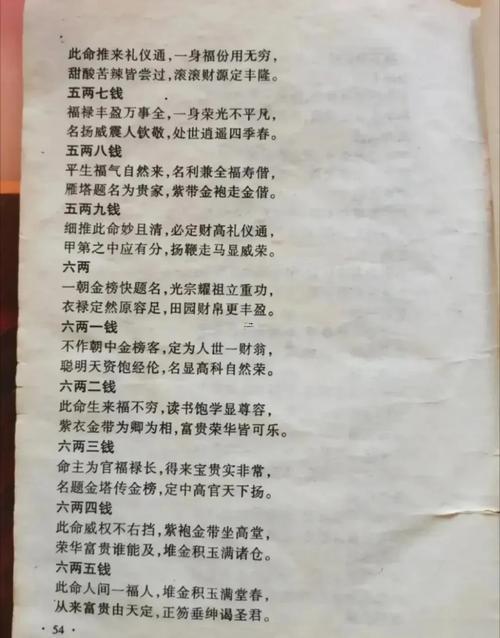 此命推来礼仪通，一身福份用无穷，
甜酸苦辣皆尝过，滚滚财源定丰隆。
五两七钱
福禄丰盈万事全，一身荣光不平凡，
名扬威震人钦敬，处世逍遥四季春。
五两八钱
平生福气自然来，名利兼全福寿偕，
雁塔题名为贵家，紫带金袍走金偕。
五两九钱
细推此命妙且清，必定财高礼仪通，
甲第之中应有分，扬鞭走马显威荣。
六两
一朝金榜快题名，光宗耀祖立重功，
衣禄定然原容足，田园财帛更丰盈。
六两一钱
不作朝中金榜客，定为人世一财翁，
聪明天资饱经伦，名显高科自然荣。
六两二钱
此命生来福不穷，读书饱学显尊容，
紫衣金带为卿为相，富贵荣华皆可乐。
六两三钱
命主为官福禄长，得来宝贵实非常，
名题金塔传金榜，定中高官天下扬。
六两四钱
此命威权不右挡，紫袍金带坐高堂，
荣华富贵谁能及，堆金积玉满诸仓。
六两五钱
此命人间一福人，堆金积玉满堂春，
从来富贵由天定，正笏垂绅谒圣君。
· 54 ·